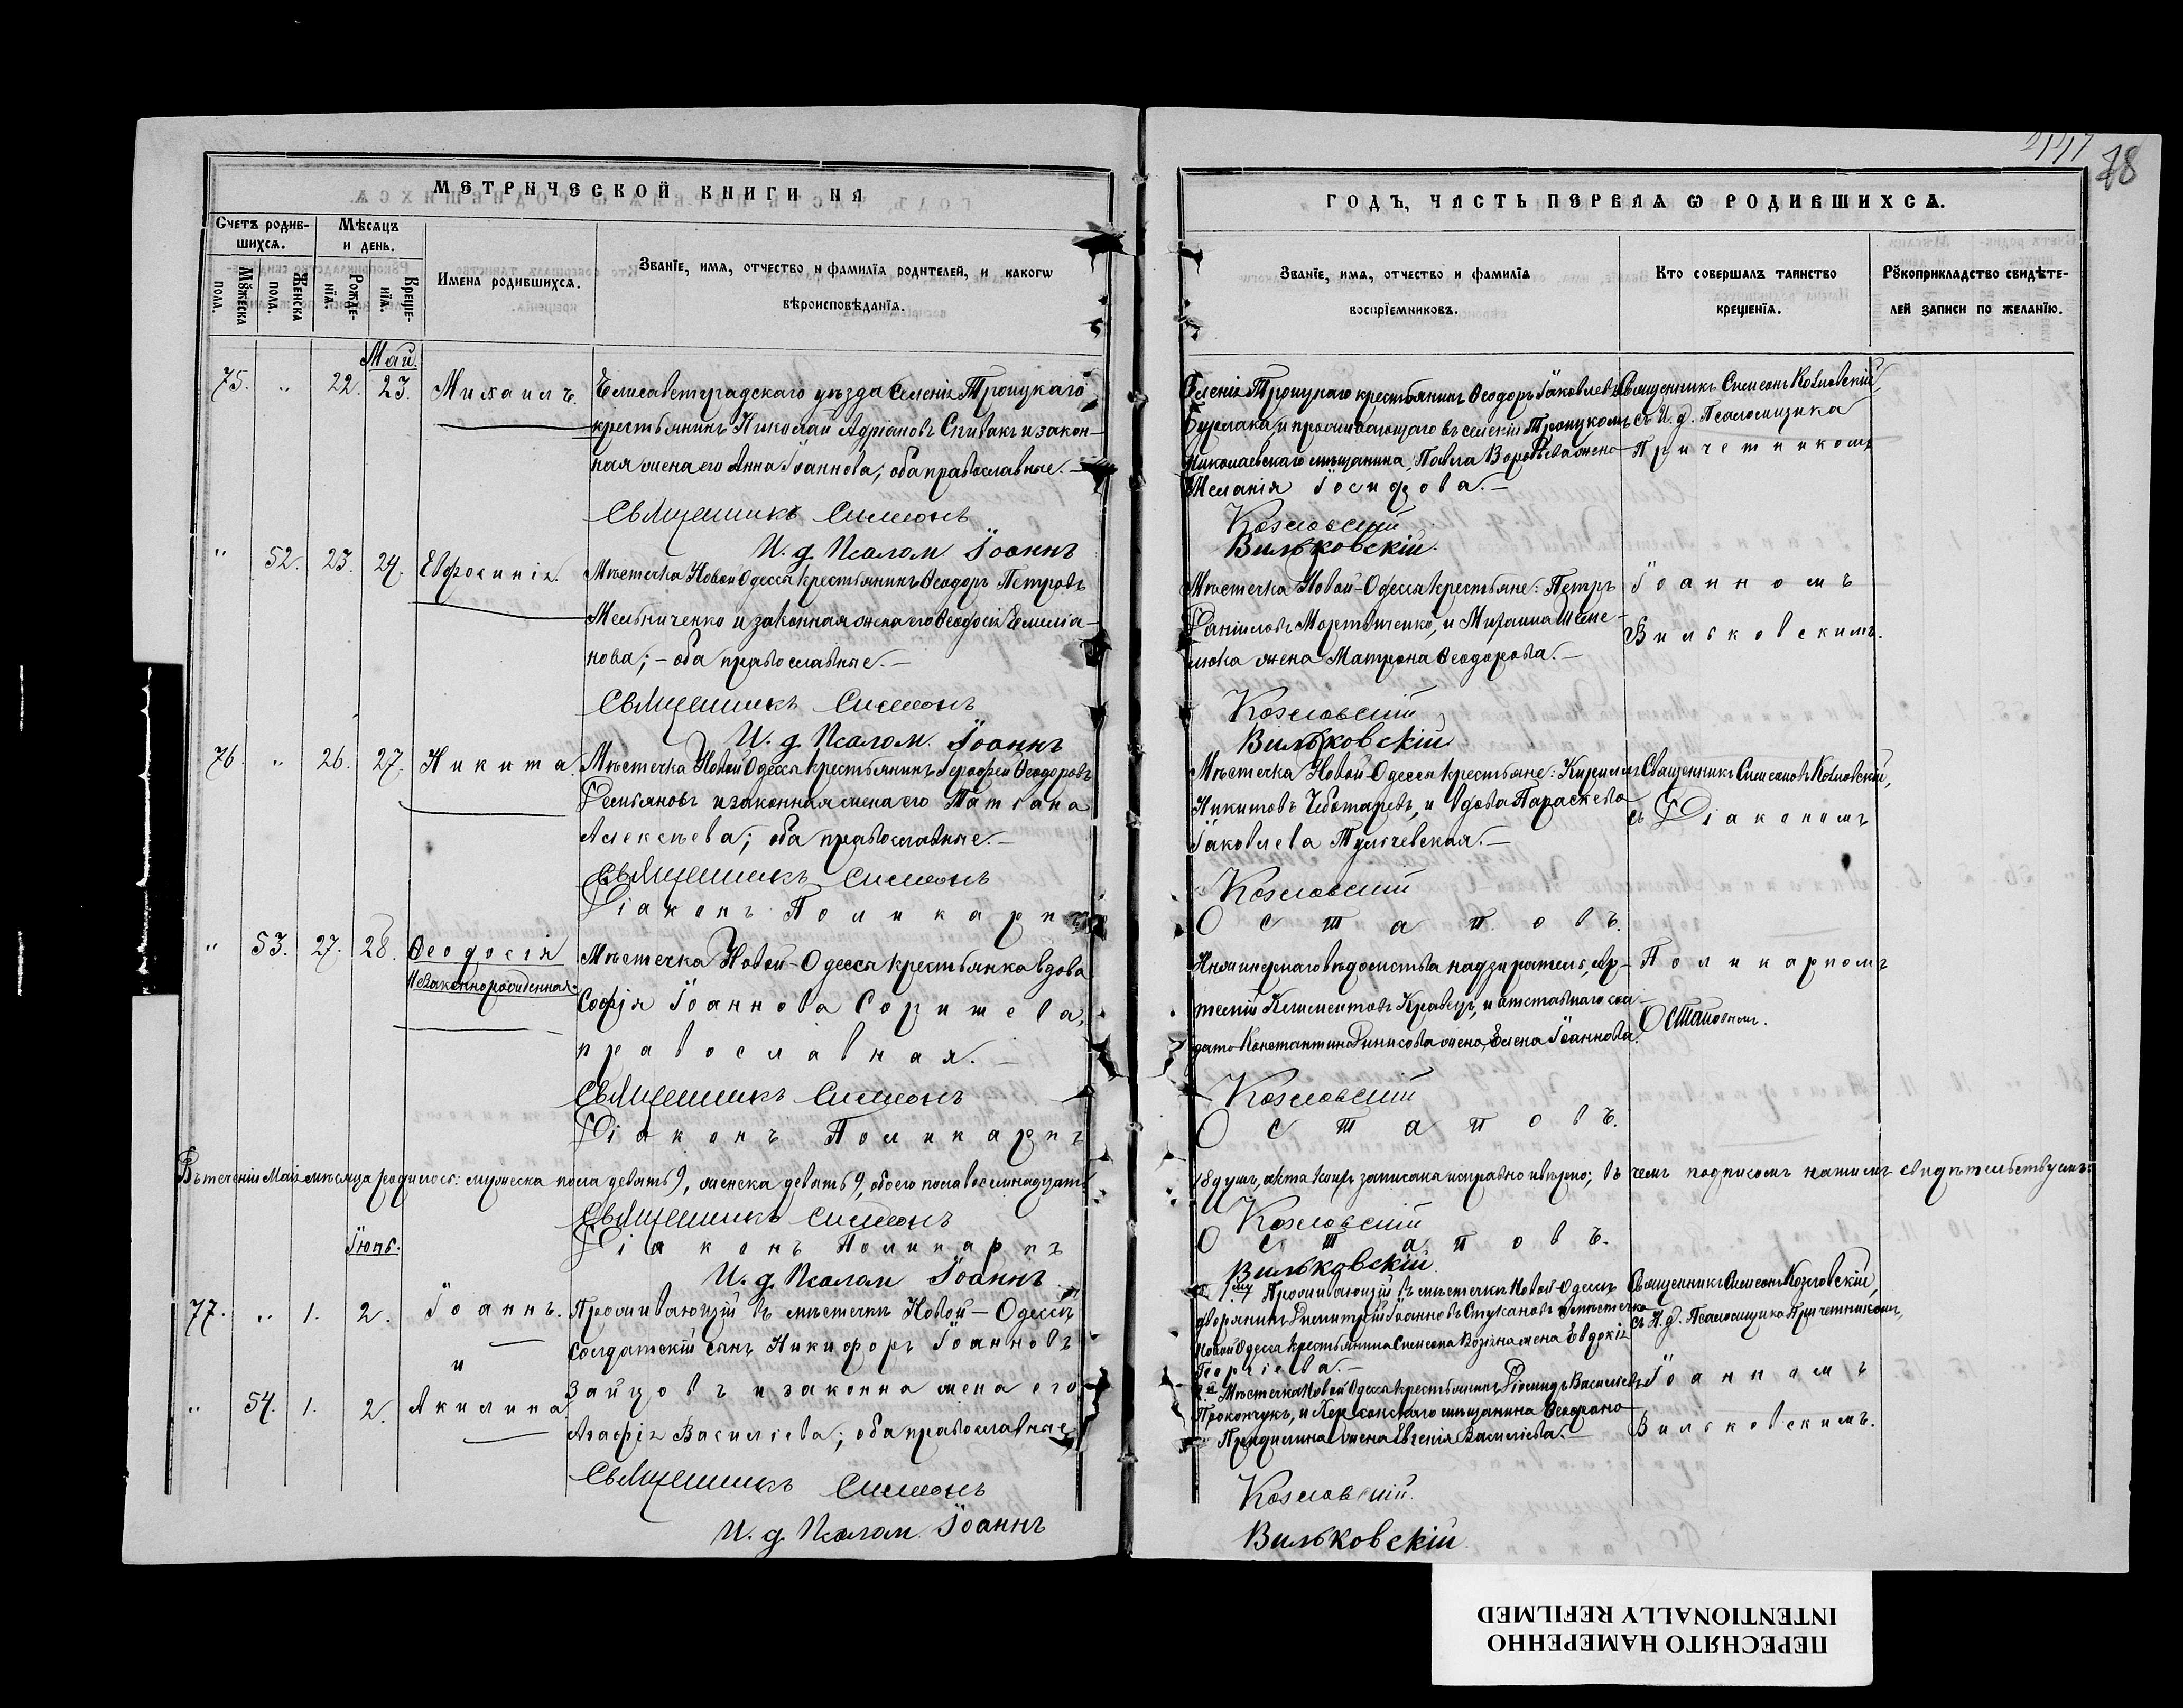 МЕТРИЧЕСКОЙ КНИГИ НА
Счетъ родив-
шихся.
Мѣсяцъ
и день.
Мꙋжеска
пола.
Женска
пола.
Рожде-
нїя.
Креще-
нїя.
Имена родившихся.
Званїе, имя, отчество и фамилїя родителей, и какогѡ
вѣроисповѣданїя.
Май.
75. " 22. 23. Михаилъ.
Елисаветградскаго уѣзда селенія Троицкаго
крестьянинъ Николай Адріановъ Спивакъ и закон-
ная жена его Анна Іоаннова; оба православные.-
Священникъ Симеонъ
И. д. Псалом. Іоаннъ
" 52. 23. 24. Евфросинія.
Мѣстечка Новой Одессы крестьянинъ Ѳеодоръ Петровъ
Мельниченко и законная жена его Ѳеодосія Емиліа-
нова; - оба православные.-
Священникъ Симеонъ
И. д. Псалом. Іоаннъ
76. " 26. 27. Никита.
Мѣстечка Новой Одессы крестьянинъ Іероѳей Ѳеодоровъ
Демьяновъ и законная жена его Татіана
Алексѣева; оба православные.-
Священникъ Симеонъ
Діаконъ Поликарпъ
" 53. 27. 28. Ѳеодосія
Незаконнорожденная.
Мѣстечка Новой-Одессы крестьянка вдова
Софія Іоаннова Соришева,
православная.-
Священникъ Симеонъ
Діаконъ Поликарпъ
Въ теченіи Маія мѣсяца родилось: мужеска пола девять 9, женска девять 9, обоего пола восемнадцать
Священникъ Симеонъ
Діаконъ Поликарпъ
И. д. Псалом Іоаннъ
Іюнь.
77. " 1. 2. Іоаннъ.
и
" 54. 1. 2. Акилина.
Проживающій въ мѣстечкѣ Новой-Одессѣ
солдатскій сынъ Никифоръ Іоанновъ
Зайцовъ и законна жена его
Агафія Василіева; оба православные
Священникъ Симеонъ
И. д. Псалом. Іоаннъ
78
ГОДЪ, ЧАСТЬ ПЕРВАЯ Ѡ РОДИВШИХСЯ.
Званїе, имя, отчество и фамилїя
воспрїемниковъ.
Кто совершалъ таинство
крещенїя.
Рꙋкоприкладство свидѣте-
лей записи по желанїю.
Селенія Троицкаго крестьянинъ Ѳеодоръ Іаковлевъ
Бурлака, и проживающаго въ селеніи Троицкомъ
Николаевскаго мѣщанина, Павла Воробьева жена
Меланія Іосифова.-
Козловскій
Вильковскій.
Священникъ Симеонъ Козловскій,
съ И. д. Псаломщика
Причетникомъ
Мѣстечка Новой-Одессы крестьяне: Петръ
Даніиловъ Мартыненко, и
жена Матрона Ѳеодорова.-
Козловскій
Вильковскій
Іоанномъ
Вильковскимъ.
Мѣстечка Новой-Одессы крестьяне: Кириллъ
Никитовъ Чеботаревъ, и вдова Параскева
Іаковлева Тульчевская.-
Козловскій
Остаповъ.
Священникъ Симеонъ Козловскій,
съ Діакономъ
Инженернаго вѣдомства надзиратель, Ар-
темій Климентовъ Кравецъ, и отставнаго сол-
дата Константина Денисова жена, Елена Іоаннова.
Козловскій
Остаповъ.
Поликарпомъ
Остаповымъ.
18 душъ, акта коихъ записана исправно и вѣрно; въ чемъ подписомъ нашимъ свидѣтельствуемъ:
Козловскій
Остаповъ.
Вильковскій.
1му Проживающій въ мѣстечкѣ Новой-Одессѣ
дворянинъ Димитрій Іоанновъ Стукановъ и мѣстечка
Новой Одессы крестьянина Симеона жена Евдокія
Георгіева.-
2й Мѣстечка Новой Одессы крестьянинъ Діомидъ Василіевъ
Прокопчукъ, и Херсонскаго мѣщанина Ѳеофана
жена Евгенія Василіева.-
Козловскій.
Вильковскій.
Священникъ Симеонъ Козловскій,
съ И. д. Псаломщика Причетникомъ,
Іоанномъ
Вильковскимъ.
ПЕРЕСНЯТО НАМЕРЕННО
INTENTIONALLY REFILMED